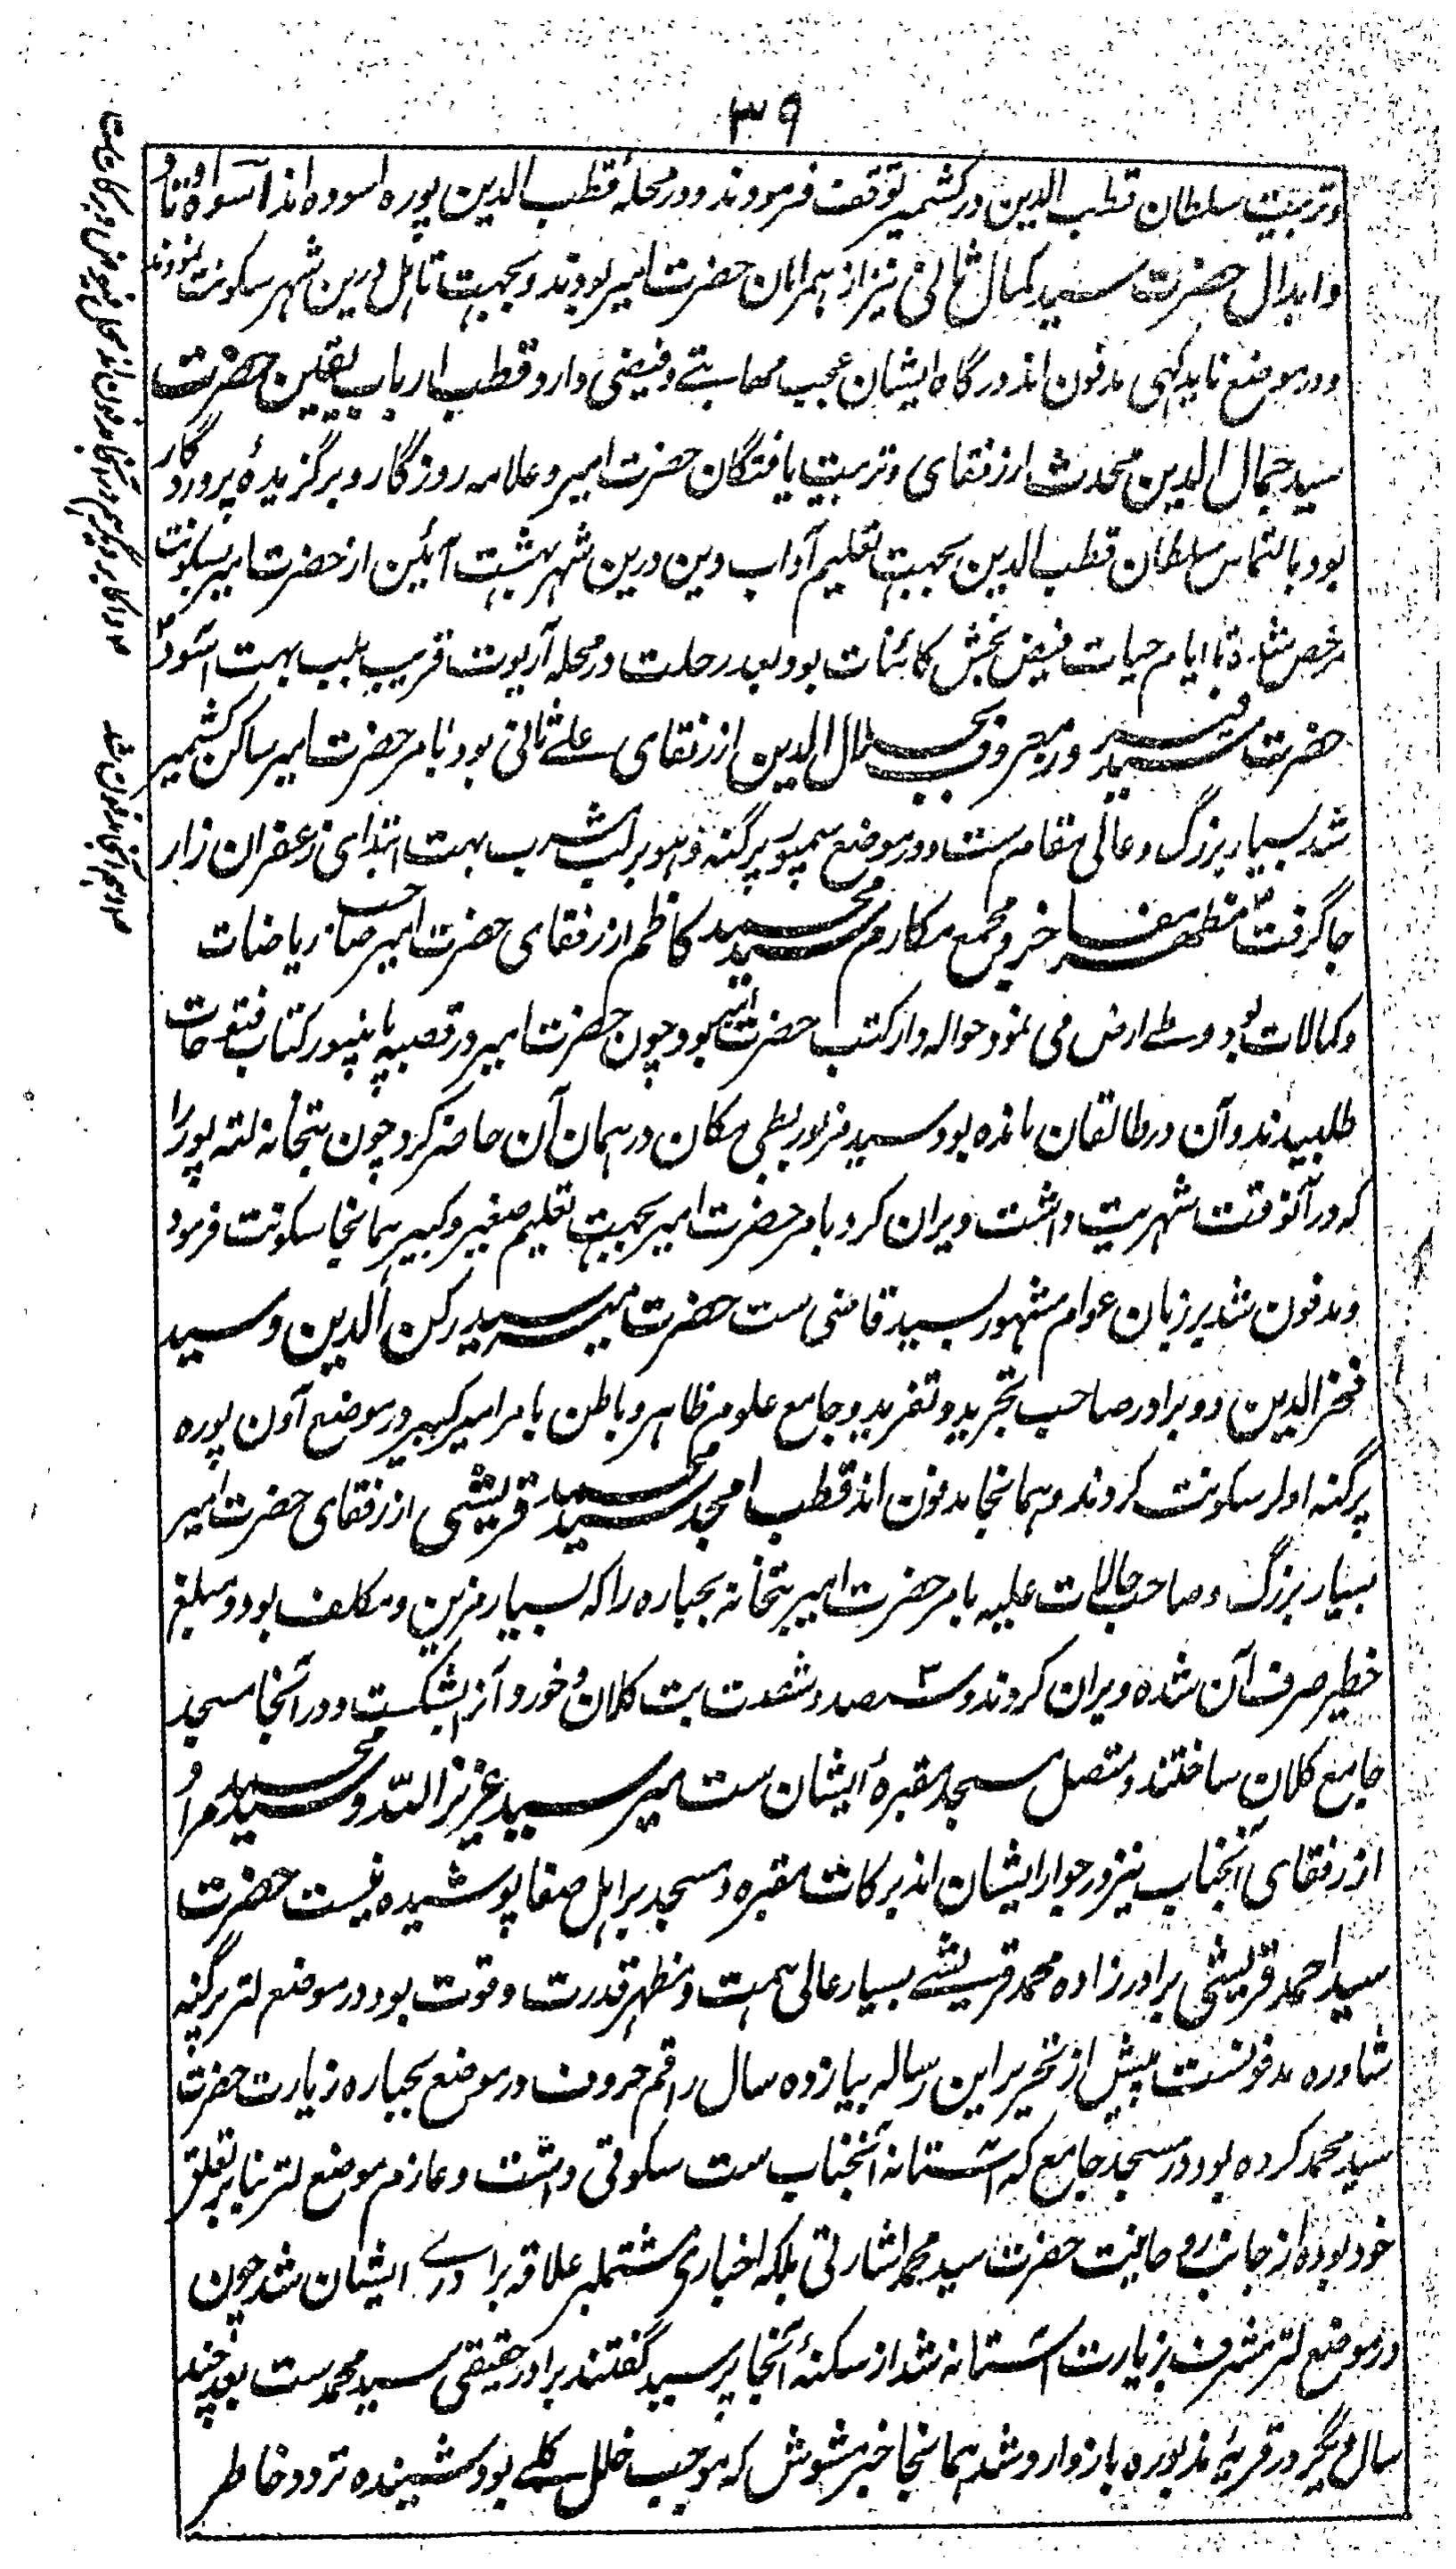 ۳۹
و تربیت سلطان قطب الدین در کشمیر توقف فرمودند و در محلهٔ قطب الدین پوره اسوده اند اسوهٔ اوتاد
و ابدال حضرت سید کمال ثانی نیز از همراهان حضرت امیر بودند و بجهت تاهل درین شهر سکونت نمودند
و در موضع نایدکهی مدفون اند درگاه ایشان عجب مهابتے و فیضی دارد قطب ارباب یقین حضرت
سید جمال الدین محدث از رفقای و تربیت یافتگان حضرت امیر و علامه روزگار و برگزیدهٔ پروردگار
بود بالتماس سلطان قطب الدین بجهت تعلیم آداب دین درین شهر بهشت آئین از حضرت امیر بسکونت
مرخص شد تا ایام حیات فیض بخش کائنات بود بعد رحلت در محله آریوت قریب بلب بهت آسود
حضرت سید فیروز معروف بجلال الدین از رفقای سید علے ثانی بود بامر حضرت امیر ساکن کشمیر
شد بسیار بزرگ و عالی مقام ست و در موضع سمپور پرگنه وهو بر لب شرب بهت ابتدای زعفران زار
جا گرفت مظهر مفاخر و مجمع مکارم سید محمد کاظم از رفقای حضرت امیر صاحب ریاضات
و کمالات بود و طے ارض می نمود حواله دار کتب حضرت امیر بود چون حضرت امیر در قصبه پانپور کتاب فتوحات
طلبیدند و آن در طالقان مانده بود سید مزبور بطی مکان در همان آن حاضر کرد چون بتخانه لته پور را
که در آنوقت شهریت داشت ویران کرد بامر حضرت امیر بجهت تعلیم صغیر و کبیر همانجا سکونت فرمود
و مدفون شد بر زبان عوام مشهور بسید قاضی ست حضرت میر سید رکن الدین و سید
فخر الدین دو برادر صاحب تجرید و تفرید و جامع علوم ظاهر و باطن بامر امیر کبیر در موضع آون پوره
پرگنه اولر سکونت کردند و همانجا مدفون اند قطب امجد سید محمد قریشی از رفقای حضرت امیر
بسیار بزرگ و صاحب حالات علیه بامر حضرت امیر بتخانه بجباره را که بسیار مزین و مکلف بود و مبلغ
خطیر صرف آن شده ویران کردند و سه صد و شصت بت کلان و خورد آنرا بشکست و در آنجا مسجد
جامع کلان ساختند و متصل مسجد مقبرهٔ ایشان ست میر سید عزیز الله و سید محمد مراد
از رفقای آنجناب نیز در جوار ایشان اند برکات مقبره و مسجد بر اهل صفا پوشیده نیست حضرت
سید احمد قریشی برادر زاده محمد قریشے بسیار عالی همت و مظهر قدرت و قوت بود در موضع لتر پرگنه
شاوره مدفونست پیش از تحریر این رساله بیازده سال راقم حروف در موضع بجباره زیارت حضرت
سید محمد کرده بود در مسجد جامع که آستانه آنجناب ست سکوتی داشت و عازم موضع لتر بنا بر تعلق
خود بوده از جانب روحانیت حضرت سید محمد اشارتی بلکه اخباری مشتمل بر علاقه برادرے ایشان شد چون
در موضع لتر مشرف زیارت آستانه شد از سکنهٔ آنجا پرسید گفتند برادر حقیقی سید محمد ست بعد چند
سال دیگر در قریهٔ مذبوره باز وارد شد همانجا خبر مشوش که موجب خلل کلے بود شنیده تردد خاطر